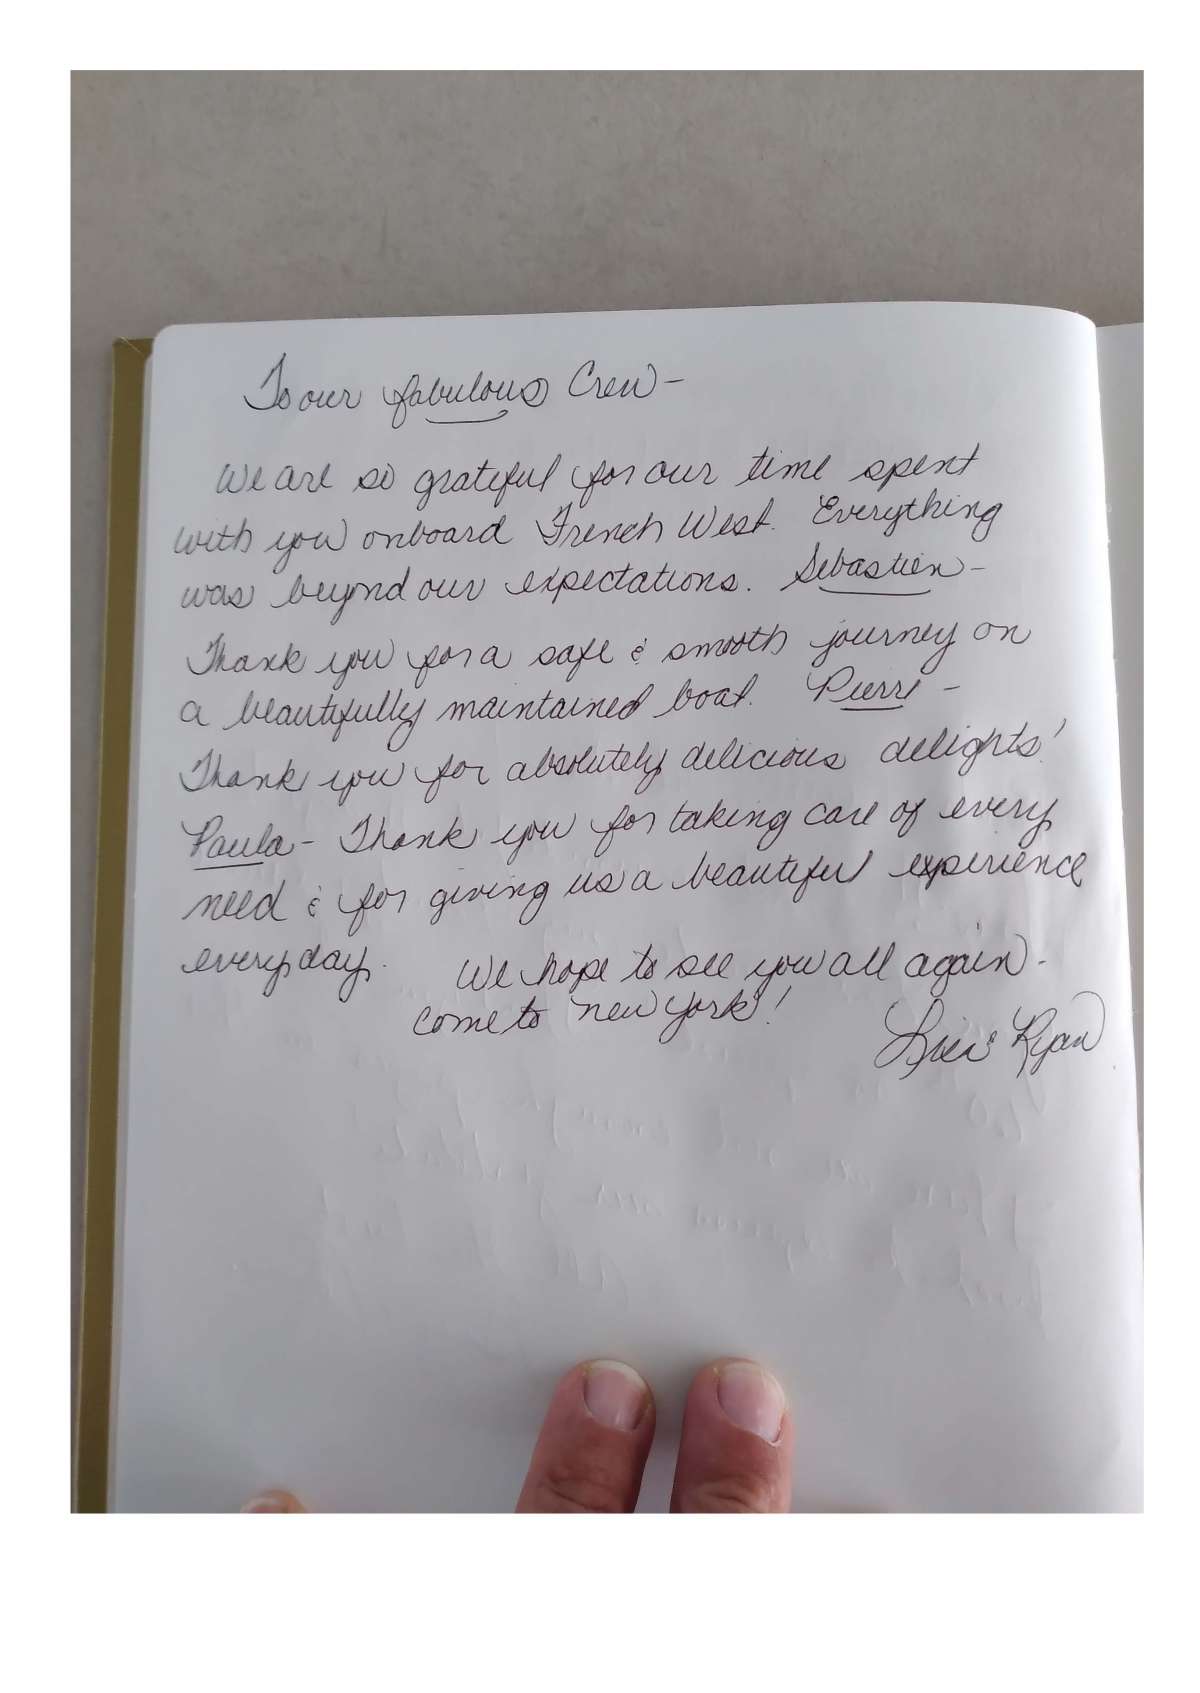 To our fabulous Crew -
We are so grateful for our time spent
with you onboard French West. Everything
was beyond our expectations. Sebastien -
Thank you for a safe & smooth journey on
a beautifully maintained boat. Pierre -
Thank you for absolutely delicious delights!
Paula - Thank you for taking care of every
need & for giving us a beautiful experience
every day. We hope to see you all again -
come to New York!
& Ryan